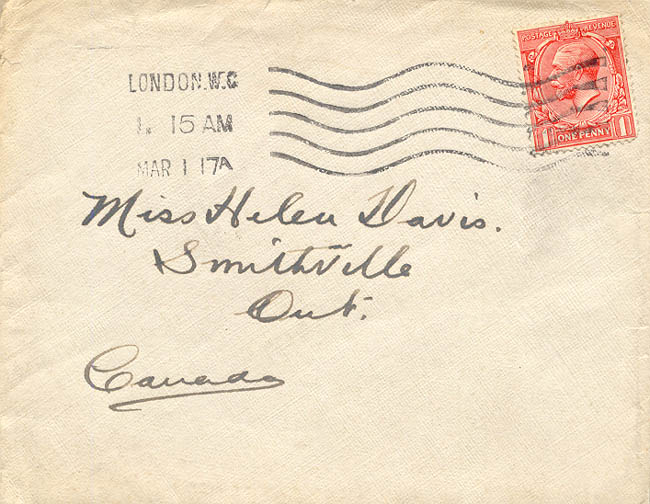 LONDON.W.C
1. 15 AM
MAR 1 17A
POSTAGE REVENUE
1 ONE PENNY 1
Miss Helen Davis.
Smithville
Ont.
Canada